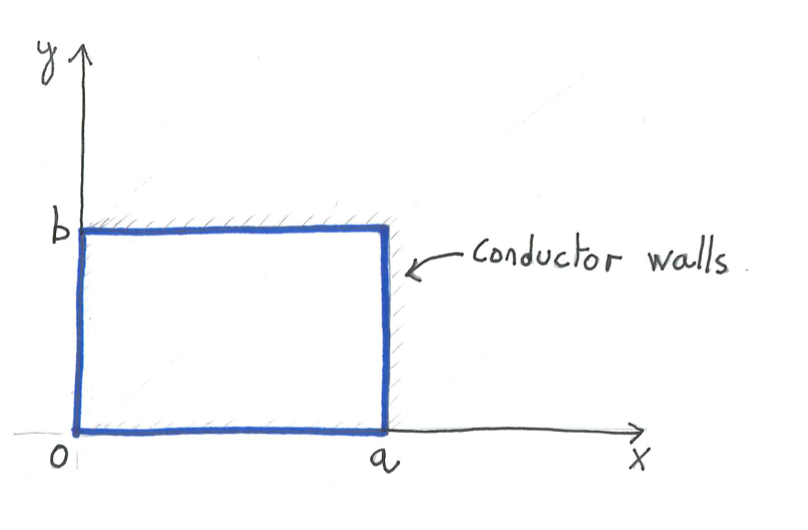 y
b
conductor walls
0
a
x